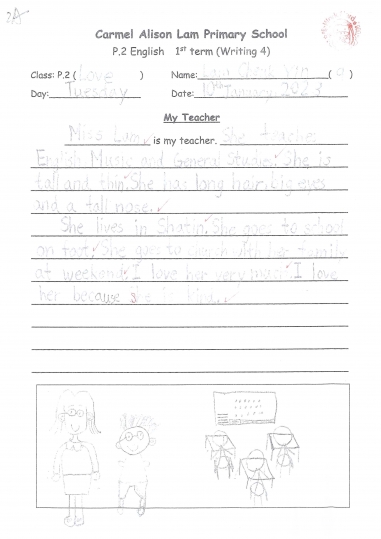 2A
Carmel Alison Lam Primary School
P.2 English 1st term (Writing 4)
Class: P.2 ( Love ) Name: Lam ( 9 )
Day: Tuesday Date: 10th January 2023
My Teacher
Miss Lam is my teacher. She teaches
English Music and General Studies. She is
tall and thin. She has long hair, big eyes
and a tall nose.
She lives in Shatin. She goes to school
on foot. She goes to church with her family
at weekend. I love her very much. I love
her because she is kind.